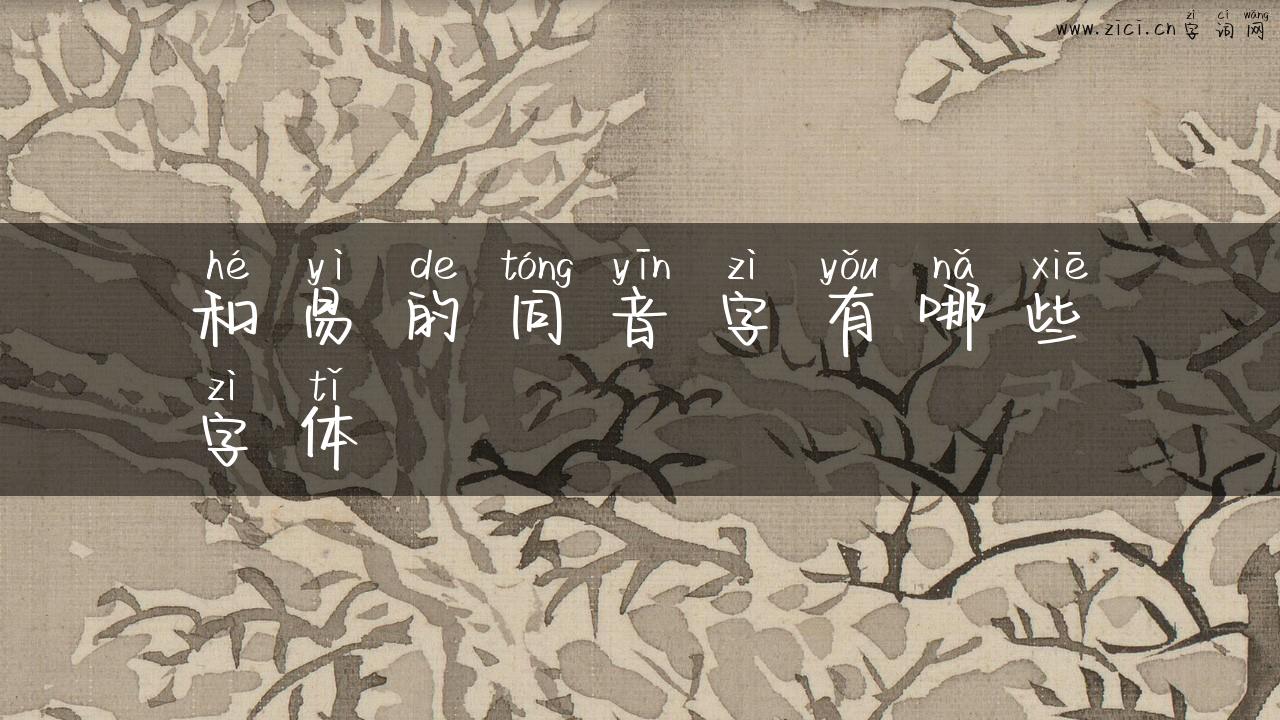 zì cí wǎng
www.zici.cn字词网
hé yì de tóng yīn zì yǒu nǎ xiē
和易的同音字有哪些
zì tǐ
字体